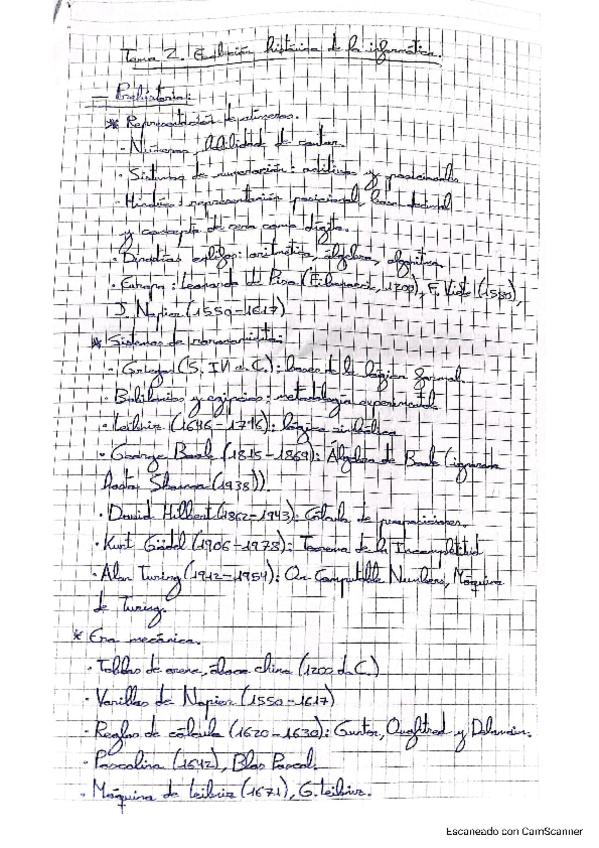 Tema 2. Evolución histórica de la informática.
- Prehistoria:
* Representación de números.
- Números, habilidad de contar.
- Sistemas de numeración: aditivos y posicionales
- Hindúes: representación posicional, base decimal
y concepto de cero como dígito.
- Dinastías califas: aritmética, álgebra, algoritmo.
- Europa: Leonardo de Pisa (Fibonacci, 1200), F. Vieta (1580),
J. Napier (1550-1617)
* Sistemas de razonamiento:
- Griegos (S. IV a.C.): bases de la lógica formal.
- Babilonios y egipcios: metodología experimental
- Leibniz (1646-1716): lógica simbólica
- George Boole (1815-1864): Álgebra de Boole (ignorada
hasta Shannon (1938)).
- David Hilbert (1862-1943): Cálculo de proposiciones.
- Kurt Gödel (1906-1978): Teorema de la Incompletitud
- Alan Turing (1912-1954): On Computable Numbers, Máquina
de Turing.
* Era mecánica.
- Tablas de arena, ábaco chino (1200 d.C.)
- Varillas de Napier (1550-1617)
- Reglas de cálculo (1620-1630): Gunter, Oughtred y Delamain.
- Pascalina (1642), Blas Pascal.
- Máquina de Leibniz (1671), G. Leibniz.
Escaneado con CamScanner